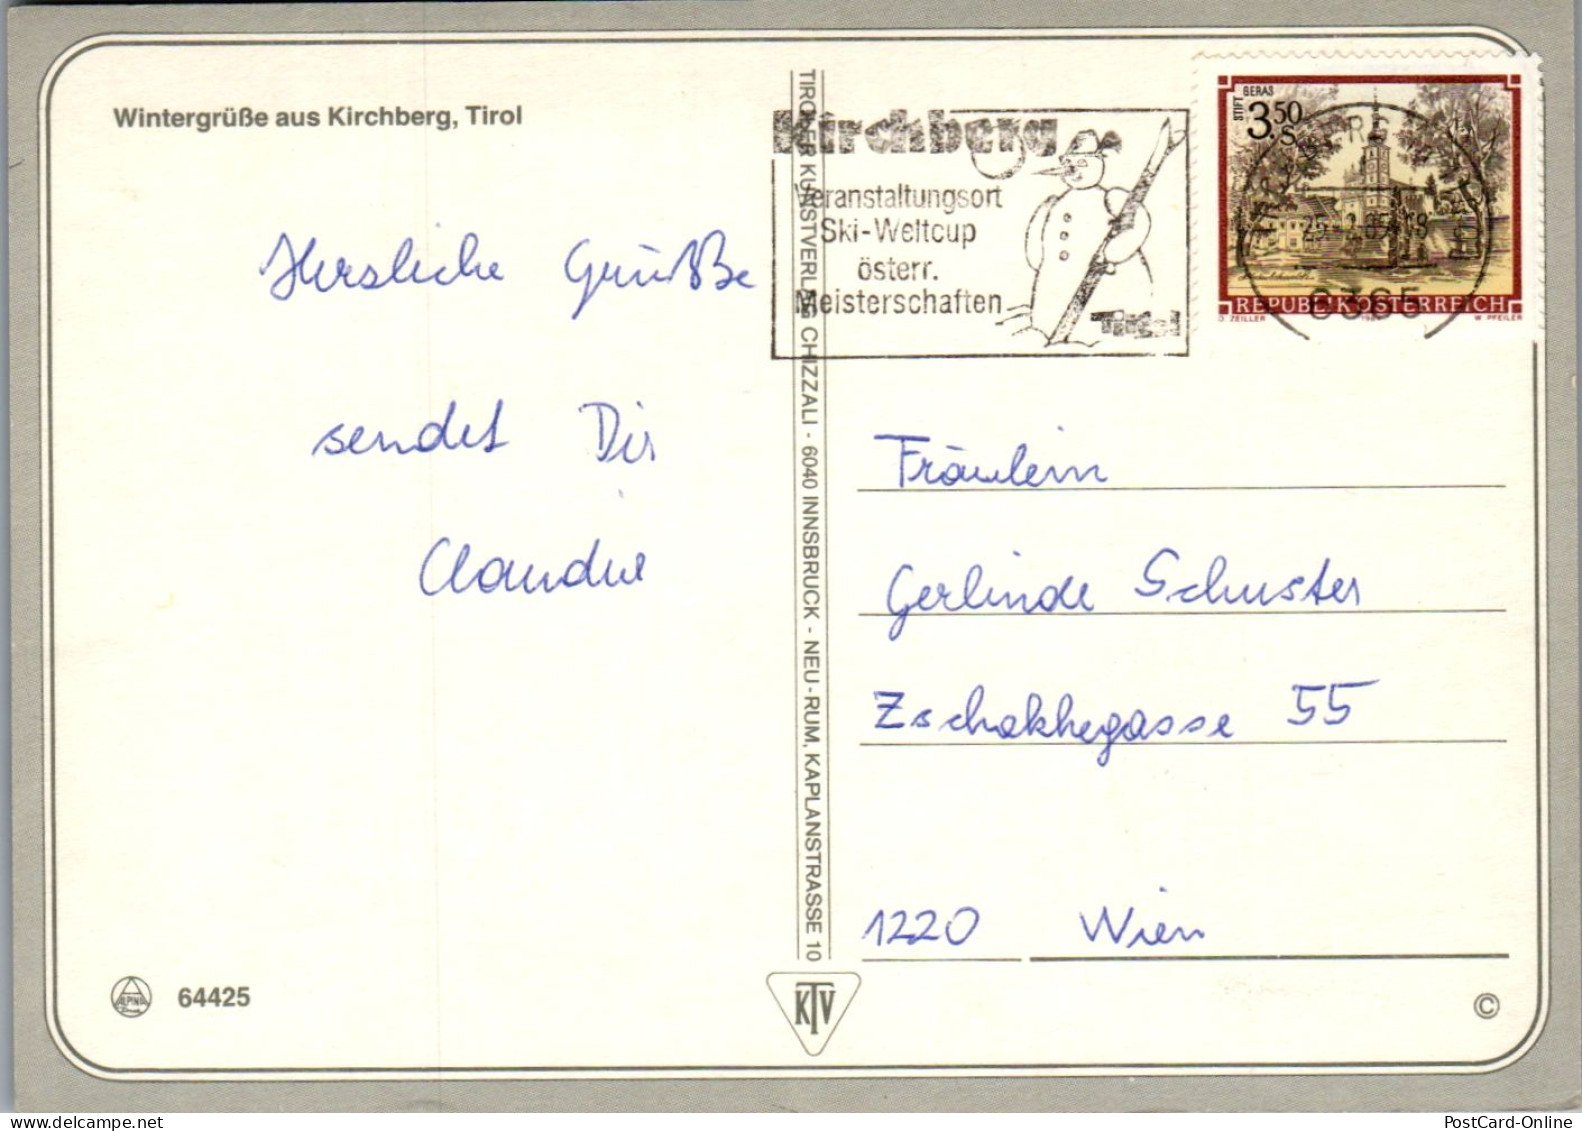 Wintergrüße aus Kirchberg, Tirol
Herzliche Grüße
sendet Dir
Claudia
64425
TIROLER KUNSTVERLAG CHIZZALI - 6040 INNSBRUCK - NEU-RUM, KAPLANSTRASSE 10
KTV
Kirchberg
Veranstaltungsort
Ski-Weltcup
österr.
Meisterschaften
Tirol
STIFT GERAS
3.50
S
REPUBLIK ÖSTERREICH
O. ZEILLER
W. PFEILER
6365
Fräulein
Gerlinde Schuster
Zschokkegasse 55
1220 Wien
©
PostCard-Online
delcampe.net